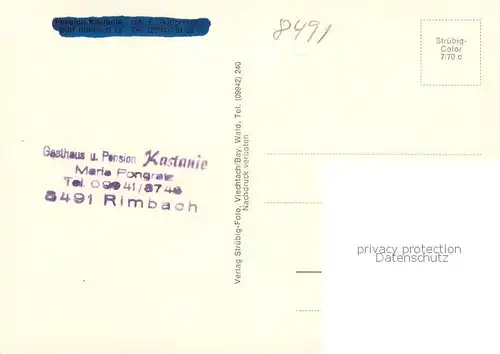 8491
Strübig-
Color
7/70 c
Gasthaus u. Pension Kastanie
Maria Pongratz
Tel. 09941/8748
8491 Rimbach
Verlag Strübig-Foto, Viechtach/Bay. Wald, Tel. (09942) 240
Nachdruck verboten
privacy protection
Datenschutz